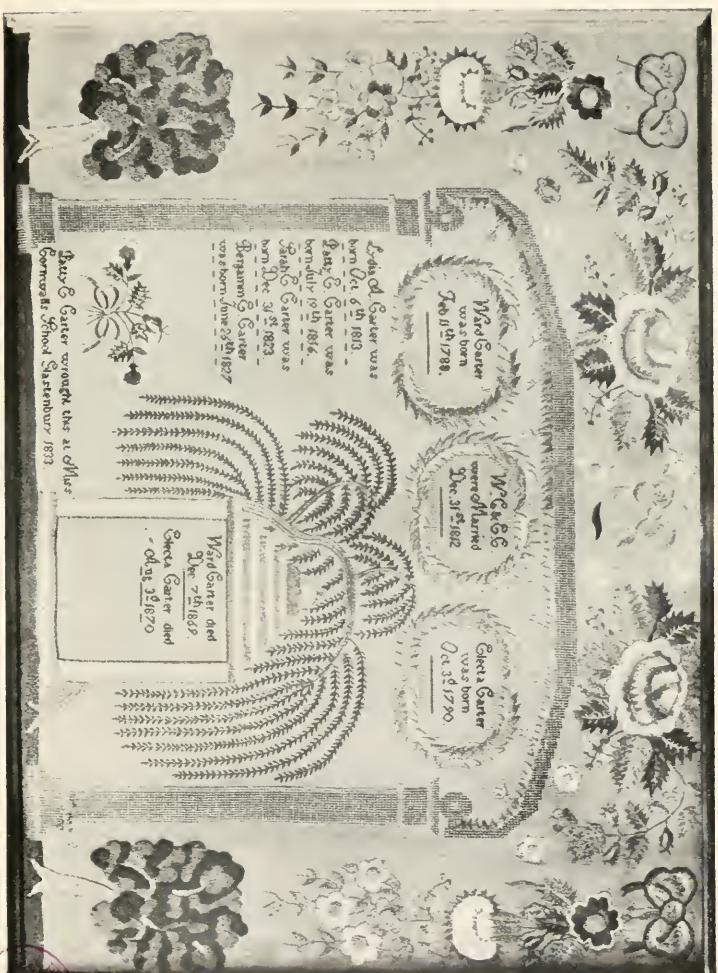 Ward Carter
was born
Feb 11th 1788.
W.C & E.C
were Married
Dec. 31st 1812
Electa Carter
was born
Oct 3d 1790.
Lydia A. Carter was
born Oct 6th 1813.
Patty C Carter was
born July 19th 1816.
Sarah C Carter was
born Dec 31st 1823.
Benjamin C Carter
was born June 26th 1827
Ward Carter died
Dec 7th 1869.
Electa Carter died
- Aug 3d 1870
Patty C Carter wrought this at Miss
Cornwalls School Glastenbury 1833.